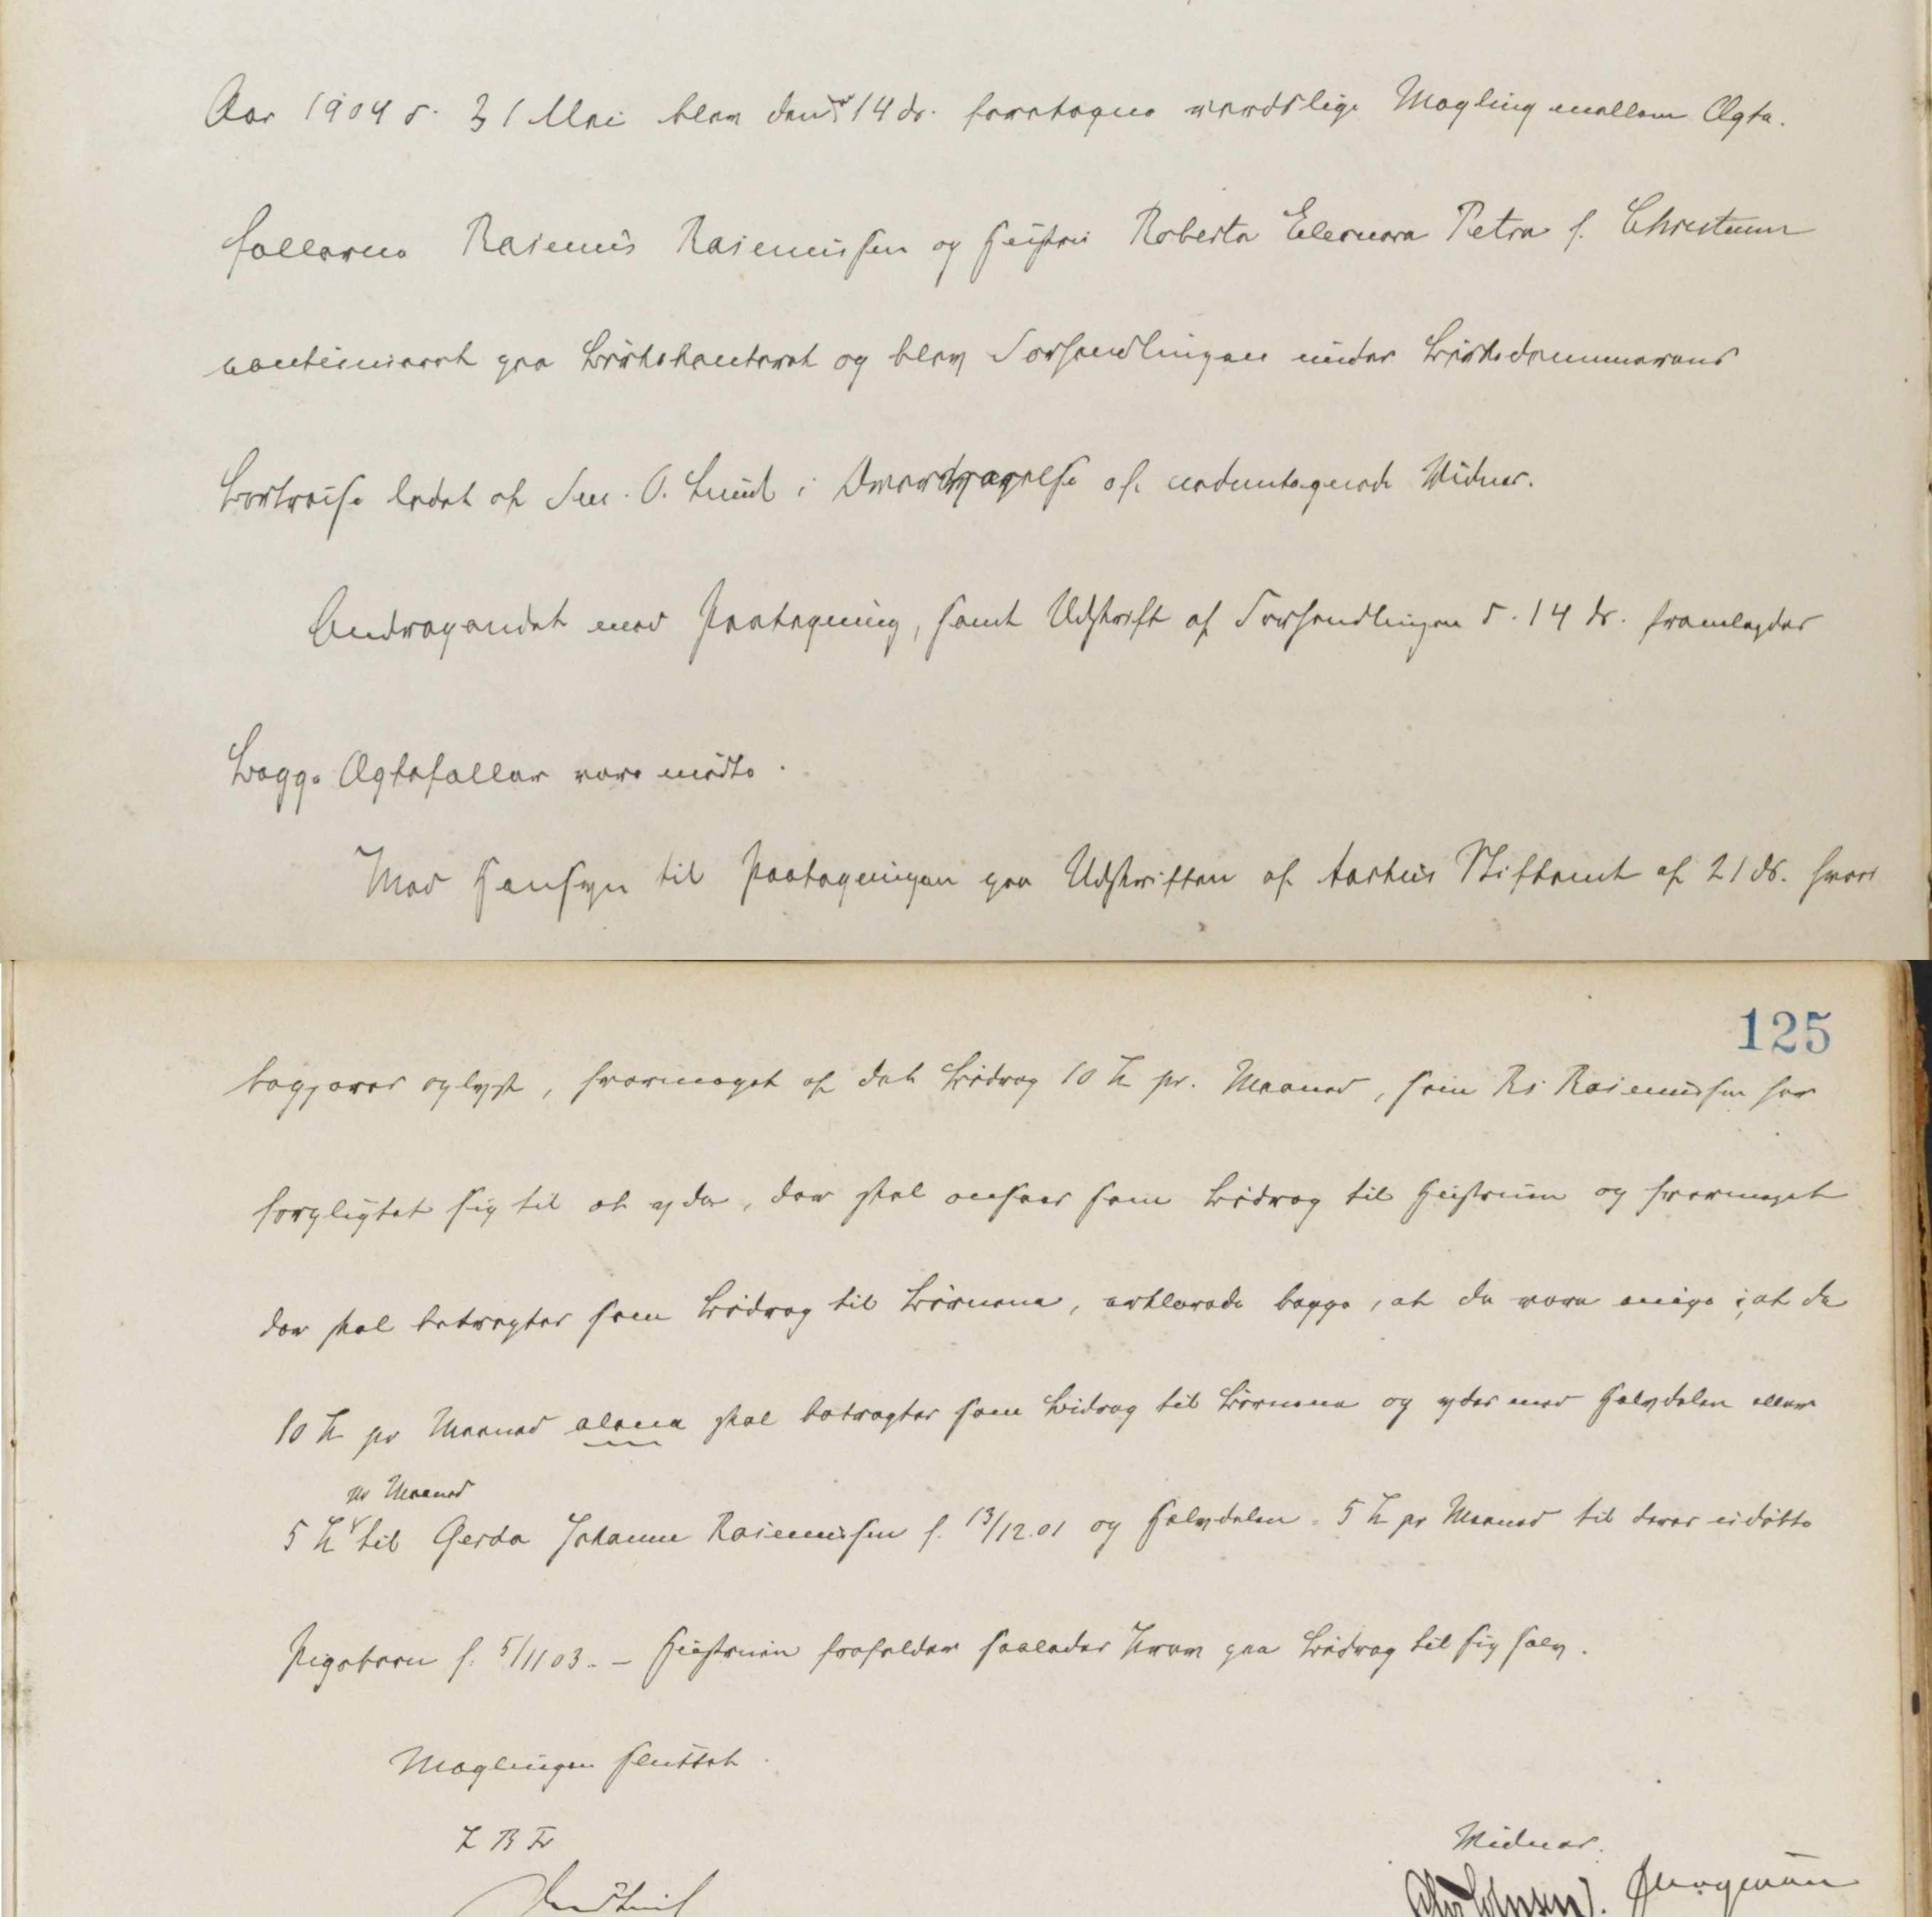 Aar 1904 d. 31 Mai blev den d. 14 ds. foretagne verdslige Mægling mellem Ægte-
fællerne Rasmus Rasmussen og Hustru Roberta Eleonora Petra f. Christensen
continueret paa Birkekontoret og blev Forhandlingen under Birkedommerens
Bortreise ledet af Fm. O. Lund i Overværelse af undertegnede Vidner.
Andragendet med Paategning, samt Udskrift af Forhandlingen d. 14 ds. fremlagdes
Begge Ægtefæller vare mødte.
Med Hensyn til Paategningen paa Udskriften af Aarhus Stiftamt af 21 ds. hvori
125
begjæres oplyst, hvormeget af det Bidrag 10 Kr pr. Maaned, som Rs Rasmussen har
forpligtet sig til at yde, der skal ansees som Bidrag til Hustruen og hvormeget
der skal betragtes som Bidrag til Børnene, erklærede begge, at de vare enige i, at de
10 Kr pr Maaned alene skal betragtes som Bidrag til Børnene og ydes med Halvdelen eller
pr Maaned
5 Kr til Gerda Johanne Rasmussen f. 13/12.01 og Halvdelen = 5 Kr pr Maaned til deres udøbte
Pigebarn f. 5/11 03. – Hustruen frafalder saaledes Krav paa Bidrag til sig selv.
Mæglingen sluttet.
Vidner.